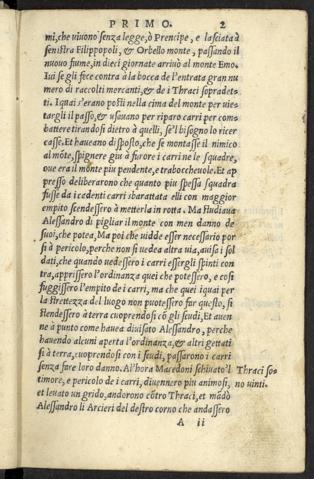 PRIMO. 2
mi, che viuono senza legge, ò Prencipe, e lasciatà à
senistra Filippopoli, & Orbello monte, passando il
nuouo fiume, in dieci giornate arriuò al monte Emo.
Iui se gli fece contra à la bocca de l'entrata gran nu
mero di raccolti mercanti, & de i Thraci sopradet=
ti. I quai s'erano posti nella cima del monte per vie=
targli il passo, & usauano per riparo carri per com=
battere tirandosi dietro à quelli, se'l bisogno lo ricer
casse. Et haueano disposto, che se montasse il nimico
al mōte, spignere giu à furore i carri ne le squadre,
oue era il monte piu pendente, e traboccheuole. Et ap
presso deliberarono che quanto piu spessa squadra
fusse da i cedenti carri sbarattata elli con maggior
empito scendessero à metterla in rotta. Ma studiaua
Alessandro di pigliar il monte con men danno de
suoi, che potea, Ma poi che uidde esser necessario por
si à pericolo, perche non si uedea altra uia, auisa i sol
dati, che quando uedessero i carri essergli spinti con
tra, aprissero l'ordinanza quei che potessero, e cosi
fuggissero l'empito de i carri, ma che quei iquai per
la strettezza del luogo non puotessero far questo, si
stendessero à terra cuoprendosi cō gli scudi, Et auen
ne à punto come hauea diuisato Alessandro, perche
hauendo alcuni aperta l'ordinanza, & altri gettati
si à terra, cuoprendosi con i scudi, passarono i carri
senza fare loro danno. Al'hora Macedoni schiuato'l
timore, e pericolo de i carri, diuennero piu animosi,
et leuato un grido, andorono cōtro Thraci, et mādò
Alessandro li Arcieri del destro corno che andassero
Thraci so=
no uinti.
A ii